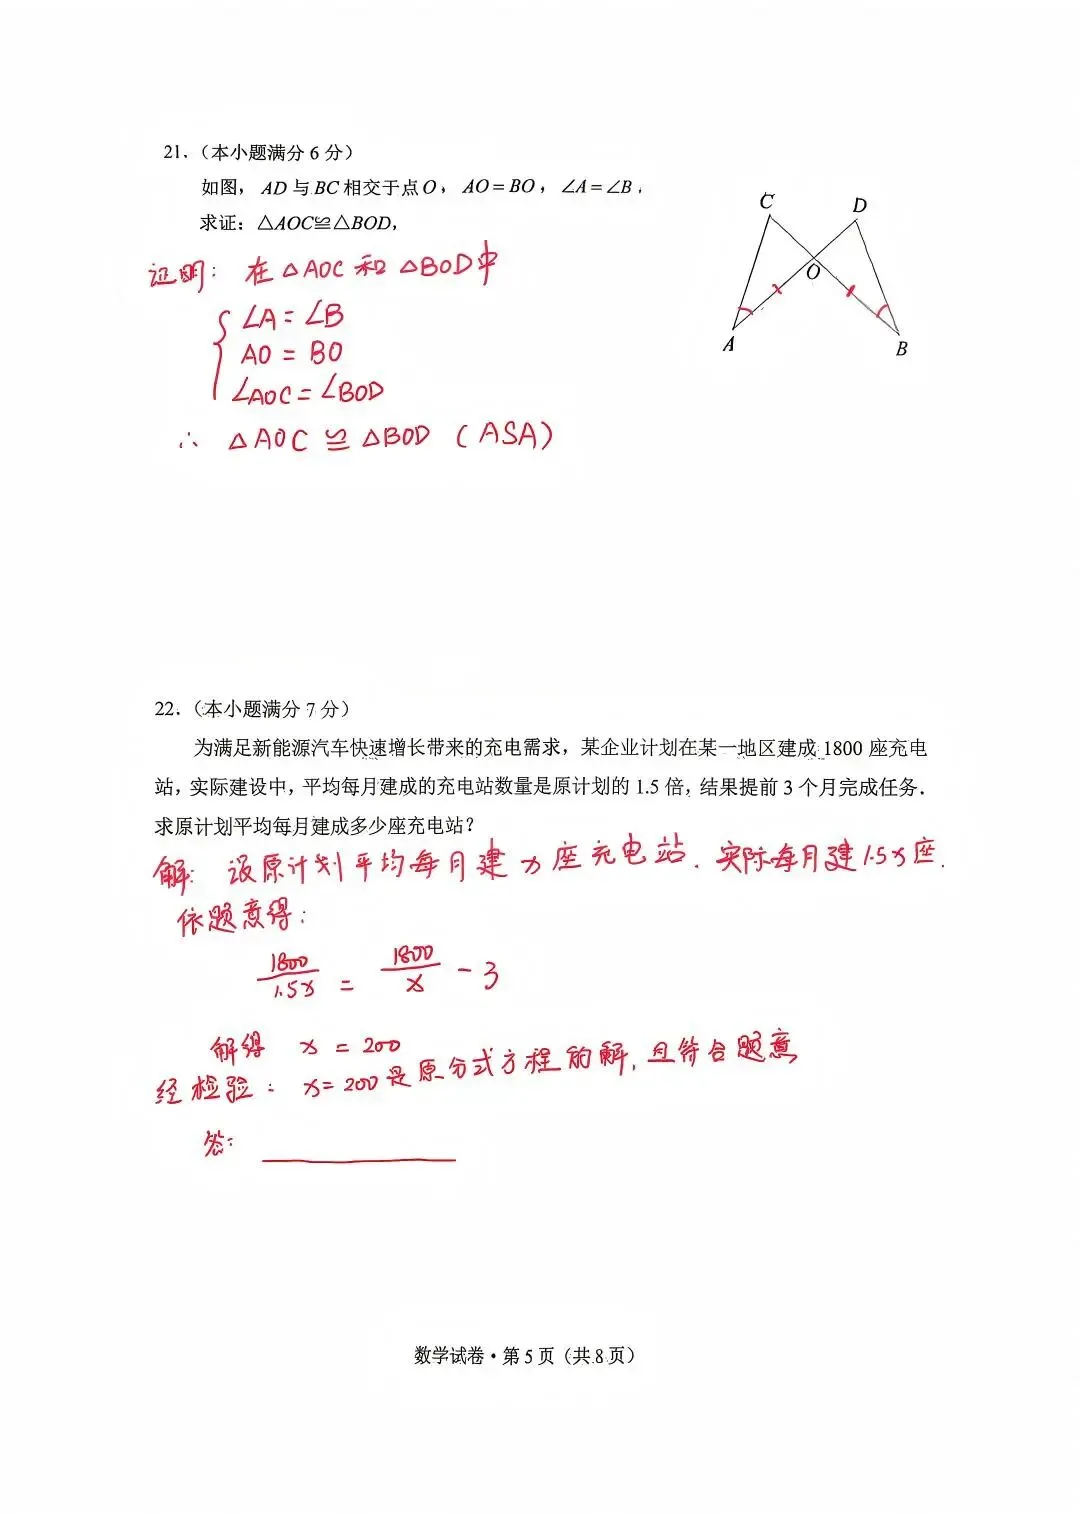 21.（本小题满分 6 分）
如图，AD 与 BC 相交于点 O，AO = BO，∠A = ∠B，
求证：△AOC≌△BOD，
C
D
O
A
B
证明：在△AOC 和 △BOD中
∠A = ∠B
AO = BO
∠AOC = ∠BOD
∴ △AOC ≌ △BOD (ASA)
22.（本小题满分 7 分）
为满足新能源汽车快速增长带来的充电需求，某企业计划在某一地区建成 1800 座充电
站，实际建设中，平均每月建成的充电站数量是原计划的 1.5 倍，结果提前 3 个月完成任务．
求原计划平均每月建成多少座充电站？
解：设原计划平均每月建 x 座充电站．实际每月建 1.5x 座．
依题意得：
1800/1.5x = 1800/x - 3
解得 x = 200
经检验：x = 200 是原分式方程的解，且符合题意
答：
数学试卷·第 5 页（共 8 页）